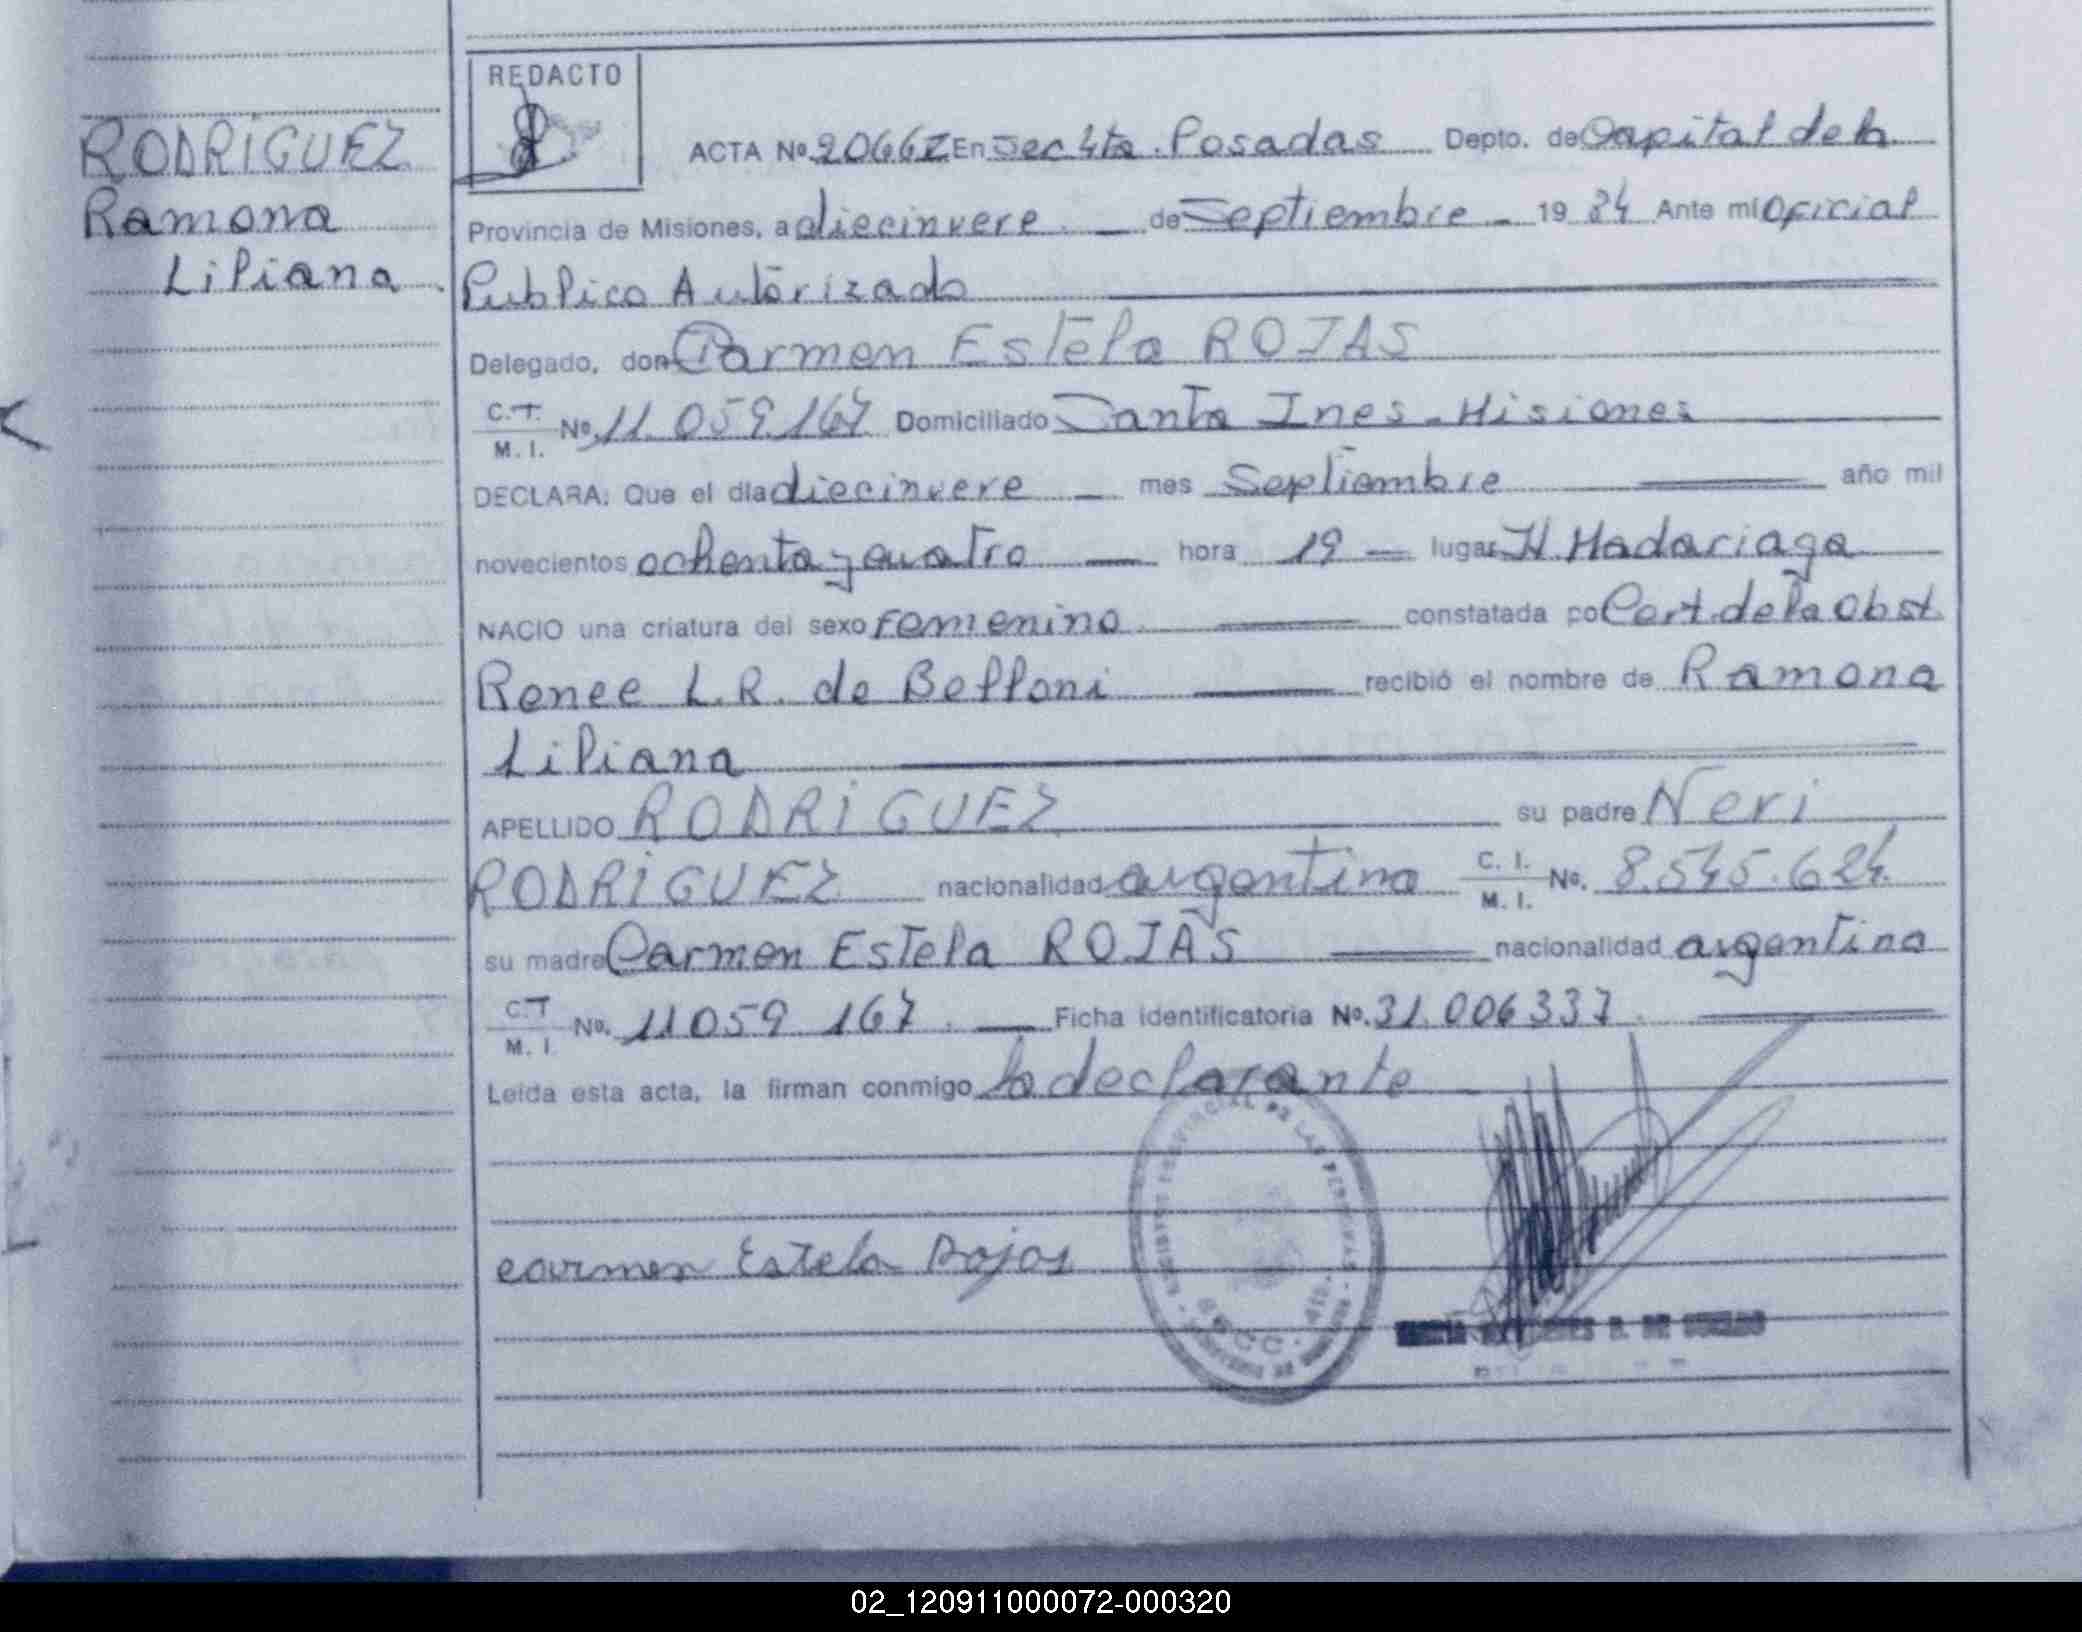 RODRIGUEZ
Ramona
Liliana
REDACTO
ACTA Nº 2066Z En Sec 4ta. Posadas Depto. de Capital de la
Provincia de Misiones, a diecinvere de Septiembre 19 84 Ante mi Oficial
Publico Autorizado
Delegado, don Carmen Estela ROJAS
C.T. M. I. Nº 11.059.167 Domiciliado Santa Ines - Misiones
DECLARA: Que el dia diecinvere mes Septiembre año mil
novecientos ochenta y cuatro hora 19 lugar H. Madariaga
NACIO una criatura del sexo Femenino constatada po Cert. de la Obst
Renee L.R. de Belloni recibió el nombre de Ramona
Liliana
APELLIDO RODRIGUEZ su padre Neri
RODRIGUEZ nacionalidad argentina C. I. M. I. Nº. 8.545.624
su madre Carmen Estela ROJAS nacionalidad argentina
C.T M. I. Nº. 11059 167 Ficha identificatoria Nº. 31.006337
Leída esta acta, la firman conmigo la declarante
carmen Estela Rojas
02_120911000072-000320